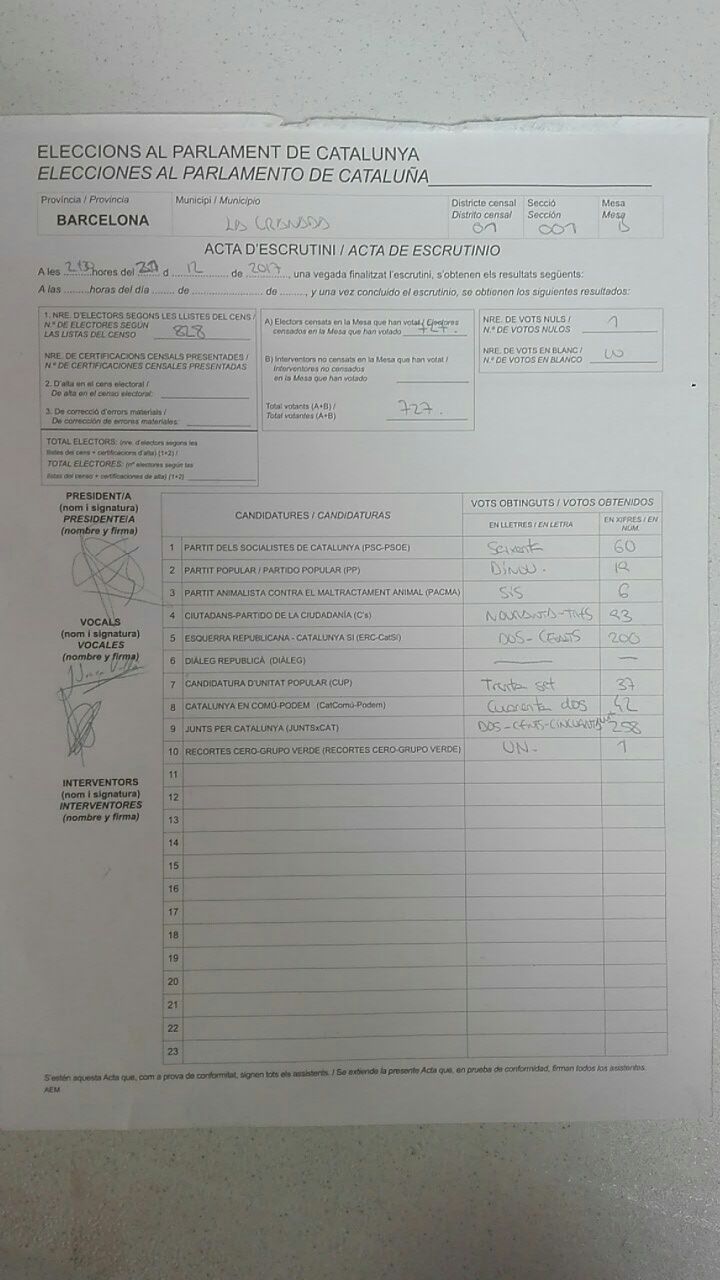 ELECCIONS AL PARLAMENT DE CATALUNYA
ELECCIONES AL PARLAMENTO DE CATALUÑA
Província / Provincia
BARCELONA
Municipi / Municipio
Districte censal
Distrito censal
01
Secció
Sección
001
Mesa
Mesa
B
ACTA D'ESCRUTINI / ACTA DE ESCRUTINIO
A les hores del d 12 de 2017, una vegada finalitzat l'escrutini, s'obtenen els resultats següents:
A las ........horas del día ....... de ........................ de ........, y una vez concluido el escrutinio, se obtienen los siguientes resultados:
1. NRE. D'ELECTORS SEGONS LES LLISTES DEL CENS /
N.º DE ELECTORES SEGÚN
LAS LISTAS DEL CENSO 828
NRE. DE CERTIFICACIONS CENSALS PRESENTADES /
N.º DE CERTIFICACIONES CENSALES PRESENTADAS
2. D'alta en el cens electoral /
De alta en el censo electoral:
3. De correcció d'errors materials /
De corrección de errores materiales:
TOTAL ELECTORS: (nre. d'electors segons les
llistes del cens + certificacions d'alta) (1+2) /
TOTAL ELECTORES: (nº electores según las
listas del censo + certificaciones de alta) (1+2)
A) Electors censats en la Mesa que han votat / Electores
censados en la Mesa que han votado 727.
B) Interventors no censats en la Mesa que han votat /
Interventores no censados
en la Mesa que han votado
Total votants (A+B) /
Total votantes (A+B) 727.
NRE. DE VOTS NULS /
N.º DE VOTOS NULOS 1
NRE. DE VOTS EN BLANC /
N.º DE VOTOS EN BLANCO
PRESIDENT/A
(nom i signatura)
PRESIDENTE/A
(nombre y firma)
VOCALS
(nom i signatura)
VOCALES
(nombre y firma)
INTERVENTORS
(nom i signatura)
INTERVENTORES
(nombre y firma)
CANDIDATURES / CANDIDATURAS
VOTS OBTINGUTS / VOTOS OBTENIDOS
EN LLETRES / EN LETRA
EN XIFRES / EN NÚM.
1 PARTIT DELS SOCIALISTES DE CATALUNYA (PSC-PSOE) Seixanta 60
2 PARTIT POPULAR / PARTIDO POPULAR (PP) Dinou. 19
3 PARTIT ANIMALISTA CONTRA EL MALTRACTAMENT ANIMAL (PACMA) SIS 6
4 CIUTADANS-PARTIDO DE LA CIUDADANÍA (C's) NORANTA-TRES 93
5 ESQUERRA REPUBLICANA - CATALUNYA SÍ (ERC-CatSí) DOS-CENTS 200
6 DIÀLEG REPUBLICÀ (DIÀLEG) — —
7 CANDIDATURA D'UNITAT POPULAR (CUP) Trenta set 37
8 CATALUNYA EN COMÚ-PODEM (CatComú-Podem) Cuaranta dos 42
9 JUNTS PER CATALUNYA (JUNTSxCAT) 258
10 RECORTES CERO-GRUPO VERDE (RECORTES CERO-GRUPO VERDE) UN. 1
11
12
13
14
15
16
17
18
19
20
21
22
23
S'estén aquesta Acta que, com a prova de conformitat, signen tots els assistents. / Se extiende la presente Acta que, en prueba de conformidad, firman todos los asistentes.
AEM